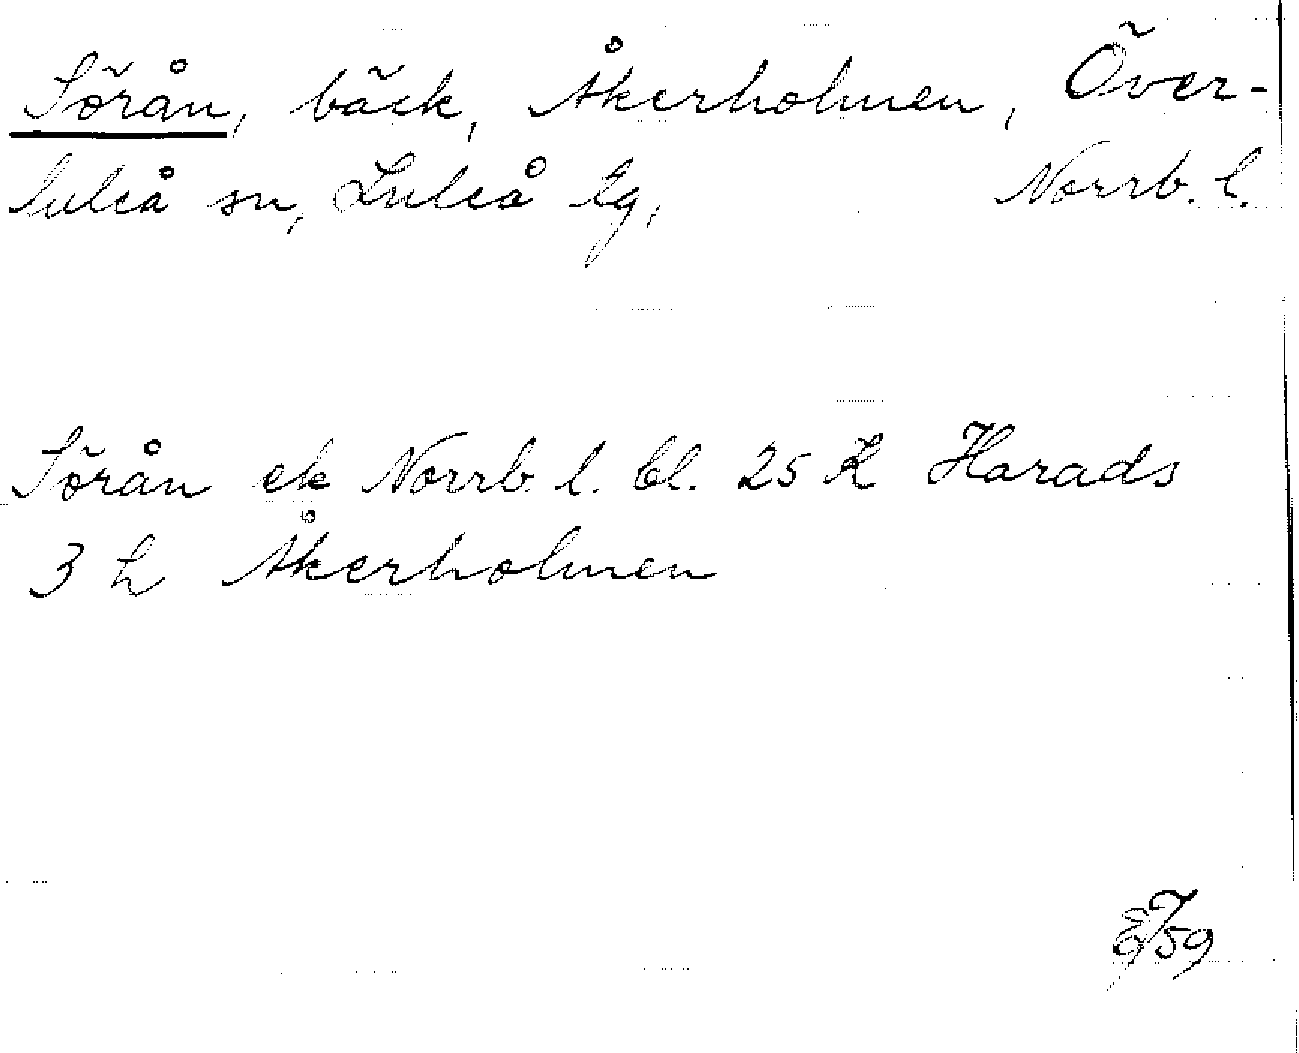 Sörån, bäck, Åkerholmen, Över-
luleå sn, Luleå lg, Norrb. l.
Sörån ek Norrb. l. bl. 25 K Harads
3 h Åkerholmen